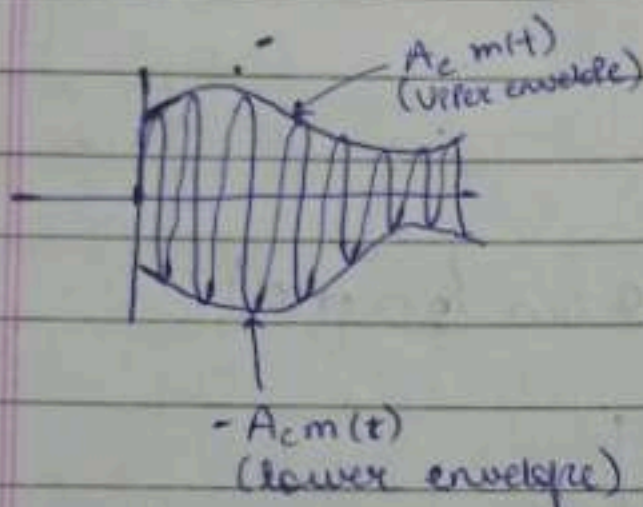 Ac m(t)
(upper envelope)
- Ac m(t)
(lower envelope)